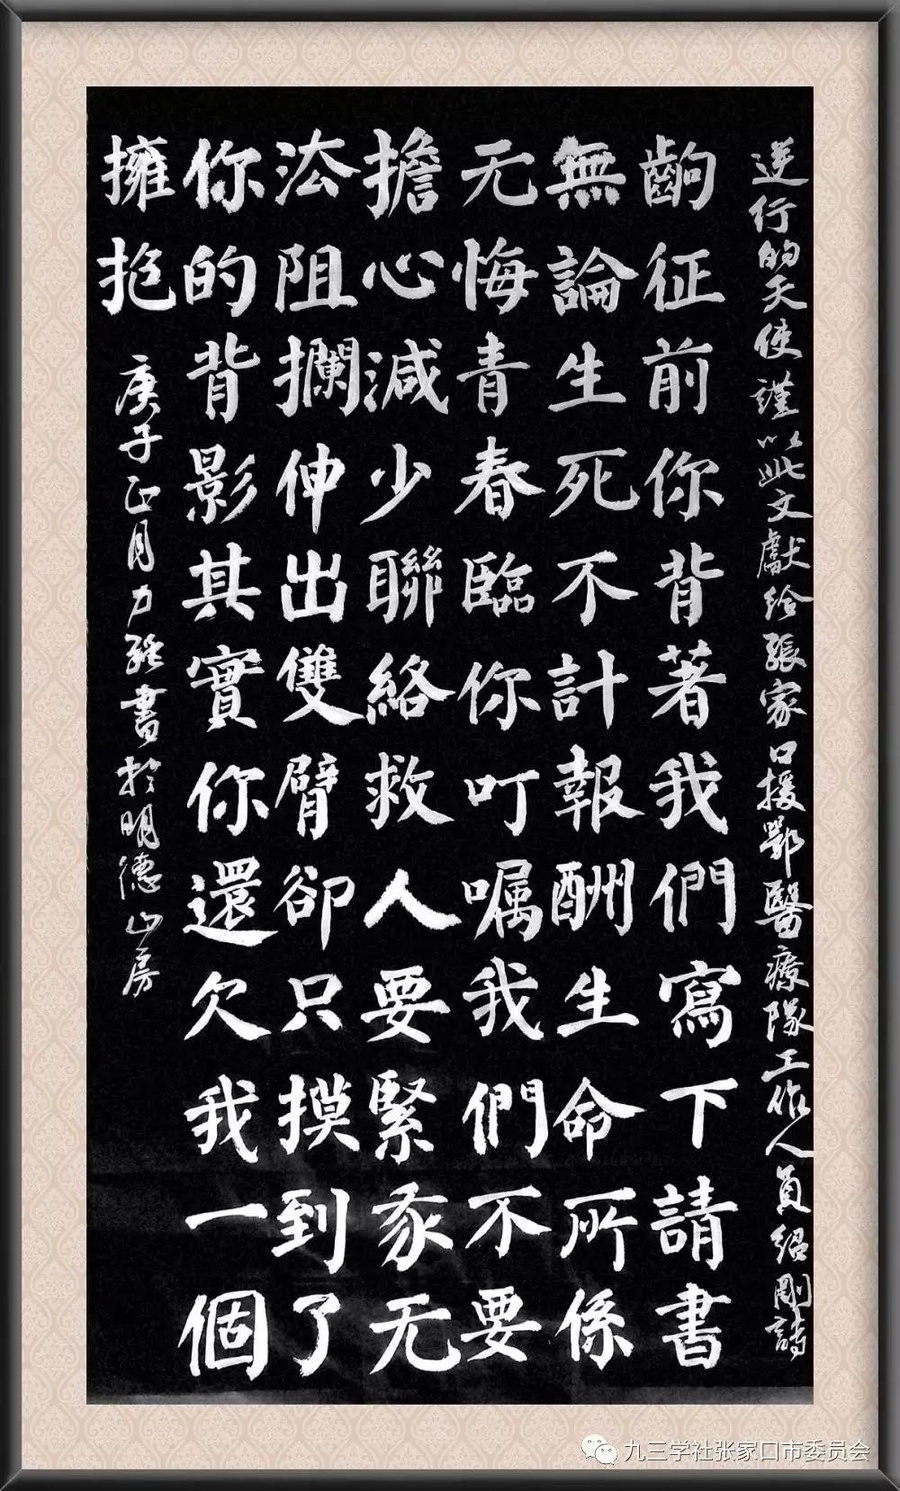 逆行的天使謹以此文獻給張家口援鄂醫療隊工作人員紹剛詩
齣征前你背著我們寫下請書
無論生死不計報酬生命所係
无悔青春臨你叮嘱我們不要
擔心減少聯絡救人要緊我无
法阻攔伸出雙臂卻只摸到了
你的背影其實你還欠我一個
擁抱
庚子正月力強書於明德山房
九三学社张家口市委员会